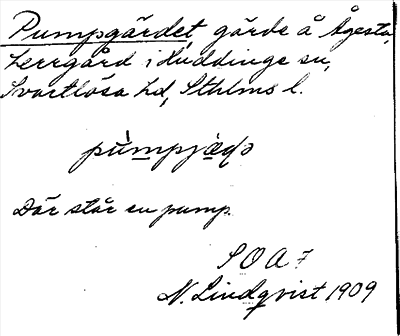 Pumpgärdet, gärde å Ågesta,
herrgård i Huddinge sn,
Svartlösa hd, Sthlms l.
pu̇̀mpjæ̣ḍə
Där står en pump.
SOA 7
N. Lindqvist 1909